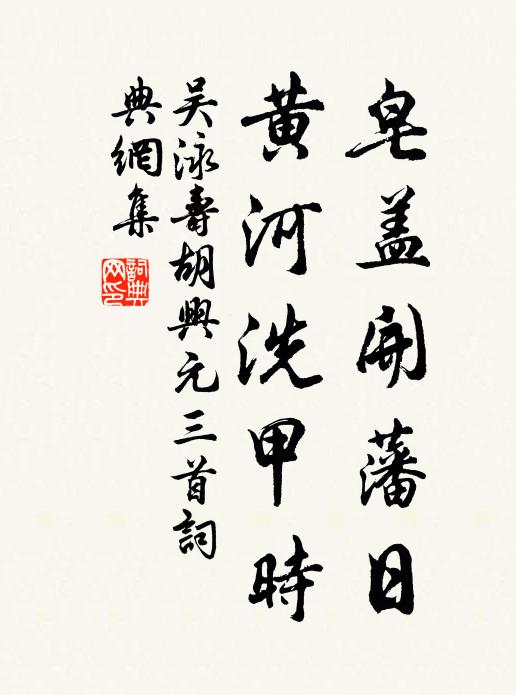 皂蓋開藩日
黃河洗甲時
吴泳壽胡興元三首詞
典網集
詞典網印